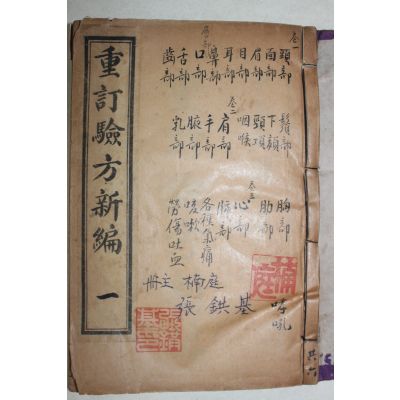 重訂驗方新編 一
卷一
頭部
面部
眉部
目部
耳部
鼻部
口部
舌部
齒部
鬚部
下頦
頸項
咽喉
卷二
肩部
手部
腋部
乳部
卷三
胸部
肋部
心部
各種氣痛
咳嗽
勞傷吐血
哮吼
庭楠 主冊
張鉷基
楠庭
共六